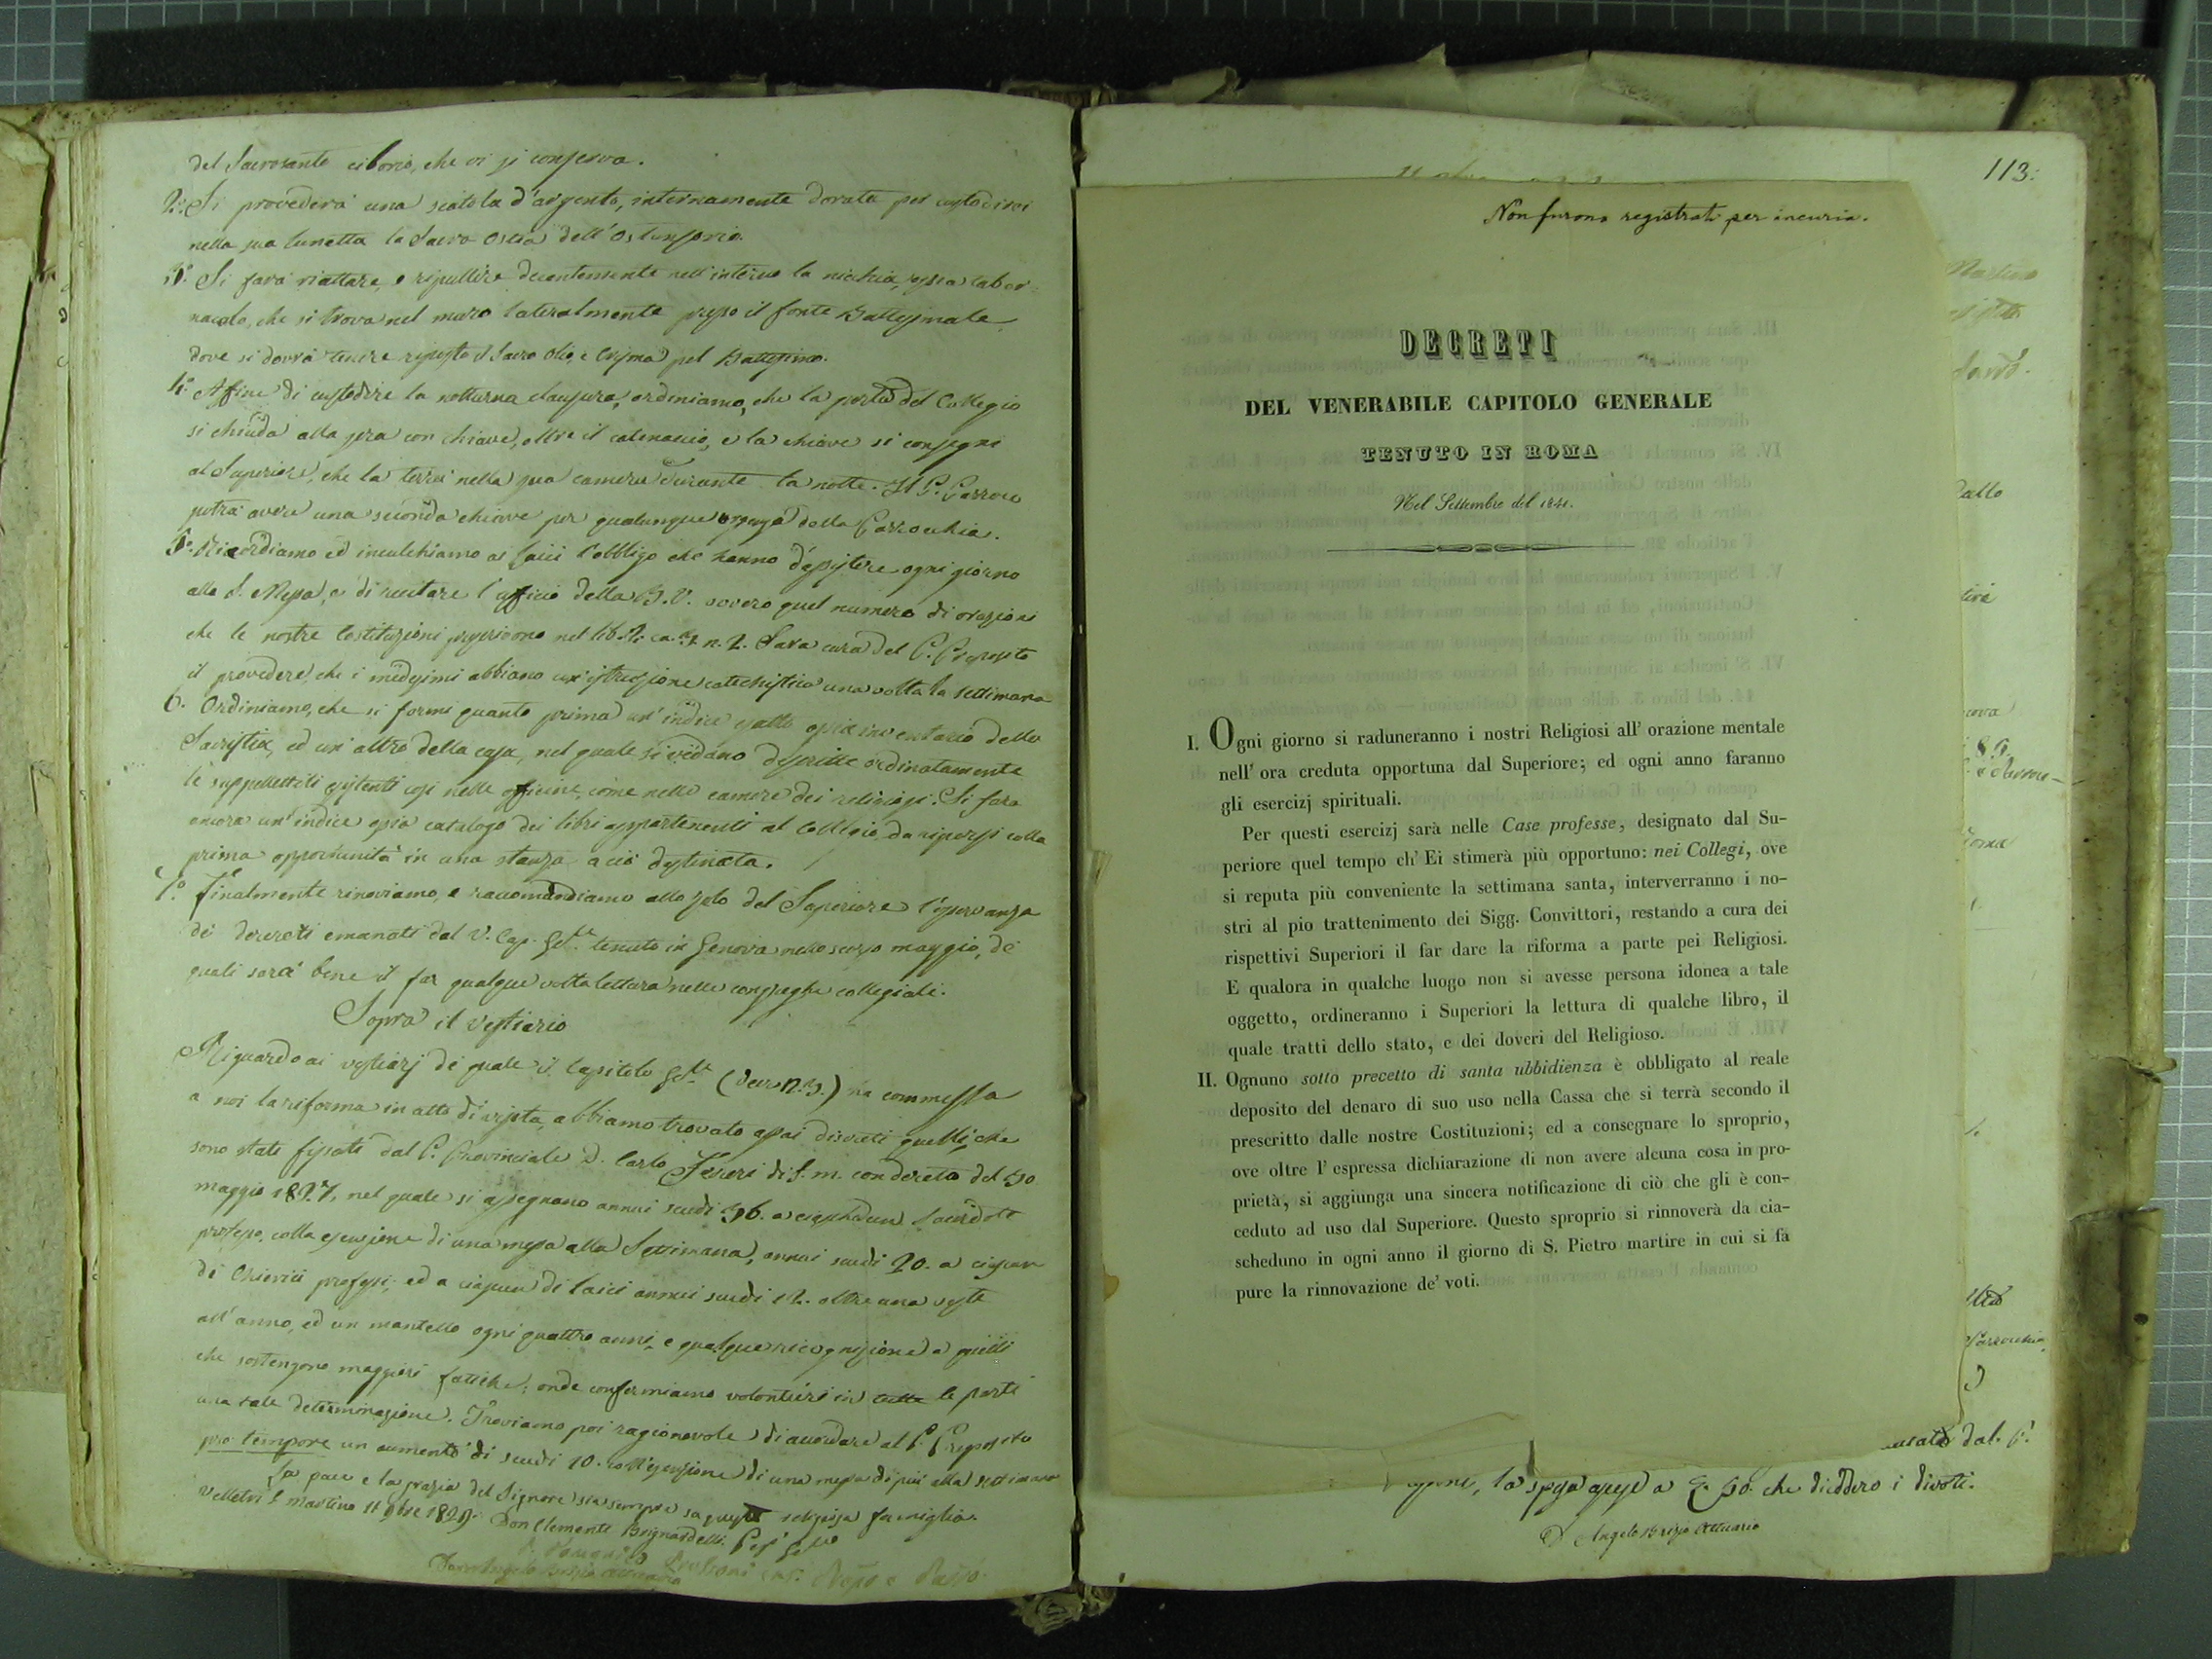 del Sacrosanto ciborio, che vi si conserva.
2.° Si provederà una scatola d'argento, internamente dorata per custodirvi
nella sua lunetta la Sacra Ostia dell'Ostensorio.
3.° Si farà riattare, e ripullire decentemente nell'interno la nicchia, ossia taber=
nacolo, che si trova nel muro lateralmente presso il fonte Battesimale,
dove si dovrà tenere riposto il Sacro Olio, e Crisma pel Battesimo.
4.° Affine di custodire la notturna clausura, ordiniamo, che la porta del Collegio
si chiuda alla sera con chiave, oltre il catenaccio, e la chiave si consegni
al Superiore, che la terrà nella sua camera durante la notte. Il P. Parroco
potrà avere una seconda chiave per qualunque urgenza della Parrocchia.
5.° Ricordiamo ed inculchiamo ai laici l'obbligo che hanno d'assistere ogni giorno
alla S. Messa, e di recitare l'afficio della B. V. ovvero quel numero di orazioni
che le nostre Costituzioni prescrivono nel lib. 2. ca. 7. n. 2. Sarà cura del P. Preposito
il provedere, che i medesimi abbiano un'istruzione catechistica una volta la settimana
6.° Ordiniamo, che si formi quanto prima un'indice esatto ossia inventario della
Sacristia, ed un'altro della casa, nel quale si vedano descritte ordinatamente
le suppellettili esistenti così nelle officine, come nelle camere dei religiosi. Si farà
ancora un'indice ossia catalogo dei libri appartenenti al Collegio da riporsi colla
prima opportunità in una stanza a ciò destinata.
7.° Finalmente rinoviamo, e raccomandiamo allo zelo del Superiore l'osservanza
dei decreti emanati dal V. Cap. Gñle tenuto in Genova nello scorso maggio, de'
quali sarà bene il far qualque volta lettura nelle congreghe collegiali.
Sopra il vestiario
Riguardo ai vestiarj de' quale il Capitolo Gñle (Decr. n. 3.) ha commessa
a noi la riforma in atto di visita, abbiamo trovato assai discreti quelli, che
sono stati fissati dal P. Provinciale D. Carlo Ferreri di f. m. con decreto del 30
maggio 1827, nel quale si assegnano annui scudi 36. a ciascheduno Sacerdote
professo, colla esenzione di una messa alla Settimana, annui scudi 20. a ciascun
di Chierici professi, ed a ciascun di laici annui scudi 12. oltre una veste
all'anno, ed un mantello ogni quattro anni, e qualque ricognizione a quelli
che sostengono maggiori fatiche; onde confermiamo volontieri in tutte le parti
una tale determinazione. Troviamo poi ragionevole di accordare al P. Preposito
pro tempore un aumento di scudi 10. coll'esenzione di una messa di più alla settimana
La pace e la grazia del Signore sia sempre su questa religiosa famiglia.
Velletri S. Martino 11 9bre 1829. Don Clemente Brignardelli Prep. Gñle
113.
Non furono registrati per incuria.
DECRETI
DEL VENERABILE CAPITOLO GENERALE
TENUTO IN ROMA
Nel Settembre del 1841.
I. Ogni giorno si raduneranno i nostri Religiosi all' orazione mentale
nell' ora creduta opportuna dal Superiore; ed ogni anno faranno
gli esercizj spirituali.
Per questi esercizj sarà nelle Case professe, designato dal Su-
periore quel tempo ch' Ei stimerà più opportuno: nei Collegi, ove
si reputa più conveniente la settimana santa, interverranno i no-
stri al pio trattenimento dei Sigg. Convittori, restando a cura dei
rispettivi Superiori il far dare la riforma a parte pei Religiosi.
E qualora in qualche luogo non si avesse persona idonea a tale
oggetto, ordineranno i Superiori la lettura di qualche libro, il
quale tratti dello stato, e dei doveri del Religioso.
II. Ognuno sotto precetto di santa ubbidienza è obbligato al reale
deposito del denaro di suo uso nella Cassa che si terrà secondo il
prescritto dalle nostre Costituzioni; ed a consegnare lo sproprio,
ove oltre l' espressa dichiarazione di non avere alcuna cosa in pro-
prietà, si aggiunga una sincera notificazione di ciò che gli è con-
ceduto ad uso dal Superiore. Questo sproprio si rinnoverà da cia-
scheduno in ogni anno il giorno di S. Pietro martire in cui si fà
pure la rinnovazione de' voti.
dal P.
la spesa ascese a che diedero i divoti.
D. Angelo Brizio Attuario